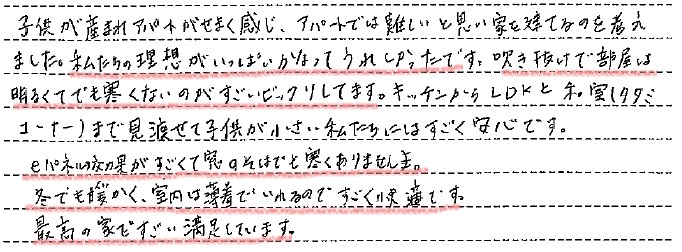 子供が産まれアパートがせまく感じ、アパートでは難しいと思い家を建てるのを考え
ました。私たちの理想がいっぱいかなってうれしかったです。吹き抜けで部屋は
明るくてでも寒くないのがすごいビックリしてます。キッチンからLDKと和室(タタミ
コーナー)まで見渡せて子供が小さい私たちにはすごく安心です。
eパネル効果がすごくて窓のそばでも寒くありません。
冬でも暖かく、室内は薄着でいれるのですごく快適です。
最高の家ですごい満足しています。